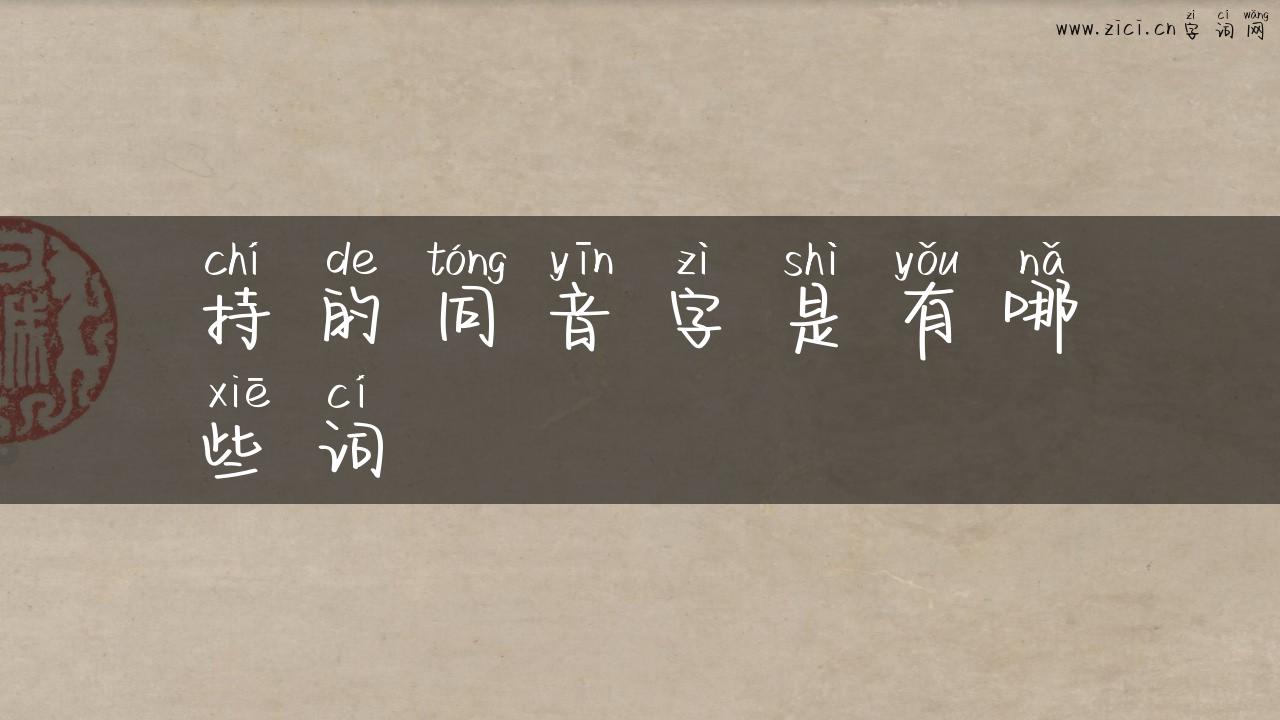 zì cí wǎng
www.zici.cn 字词网
chí de tóng yīn zì shì yǒu nǎ
持的同音字是有哪
xiē cí
些词